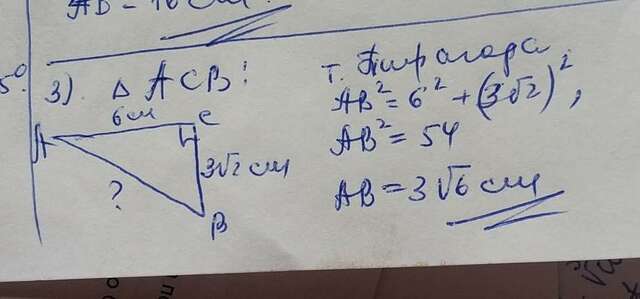 AD = 10 см.
5°.
3). △ ACB:
6 см
A
C
3√2 см
?
B
т. Пифагора
AB² = 6² + (3√2)²,
AB² = 54
AB = 3√6 см